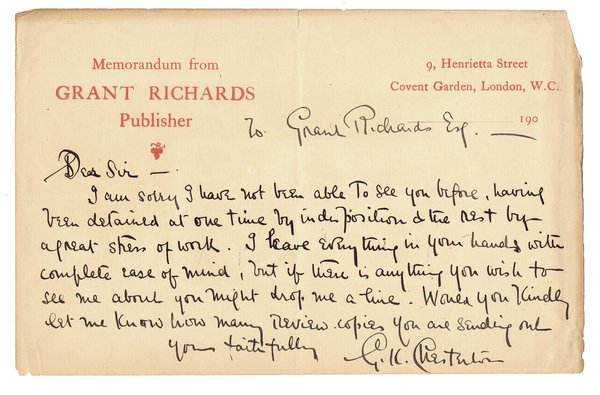 Memorandum from
GRANT RICHARDS
Publisher
9, Henrietta Street
Covent Garden, London, W.C.
190
To Grant Richards Esq.
Dear Sir —
I am sorry I have not been able to see you before, having
been detained at one time by indisposition & the rest by
a great stress of work. I leave everything in your hands with
complete ease of mind, but if there is anything you wish to
see me about you might drop me a line. Would you kindly
let me know how many review copies you are sending out
Yours faithfully
G. K. Chesterton